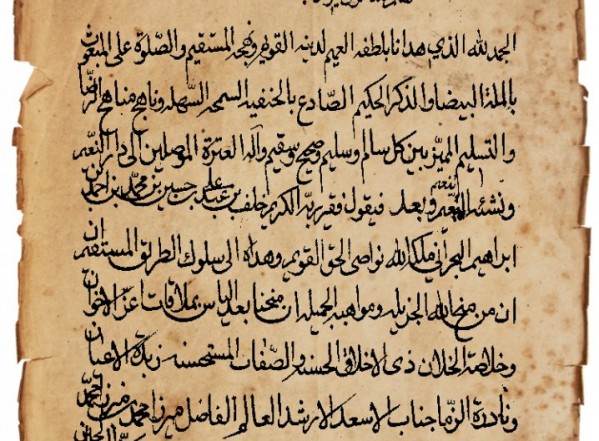 الحمد لله الذي هدانا بلطفه العميم لدينه القويم ونهجه المستقيم والصلوة على المبعوث
بالملة البيضا والذكر الحكيم الصادع بالحنفيه السمحه السهله وناهج مناهج الرضا
والتسليم المميز بين كل سالم وسليم وصحيح وسقيم وآله العترة الموصلين الى دار النعيم
وبعد فيقول فقير ربه الكريم خلف بن عبد علي بن حسين بن محمد بن احمد بن
ابراهيم البحراني ملكه الله نواصي الحق القويم وهداه الى سلوك الطريق المستقيم
ان من منح الله الجزيله ومواهبه الجميله ان منحنا بعد الياس بملاقات اعز الاخوان
وخلاصة الخلان ذى الاخلاق الحسنه والصفات المستحسنه زبدة الاعيان
ونادرة الزمان جناب الاسعد الارشد العالم الفاضل ميرزا محمد